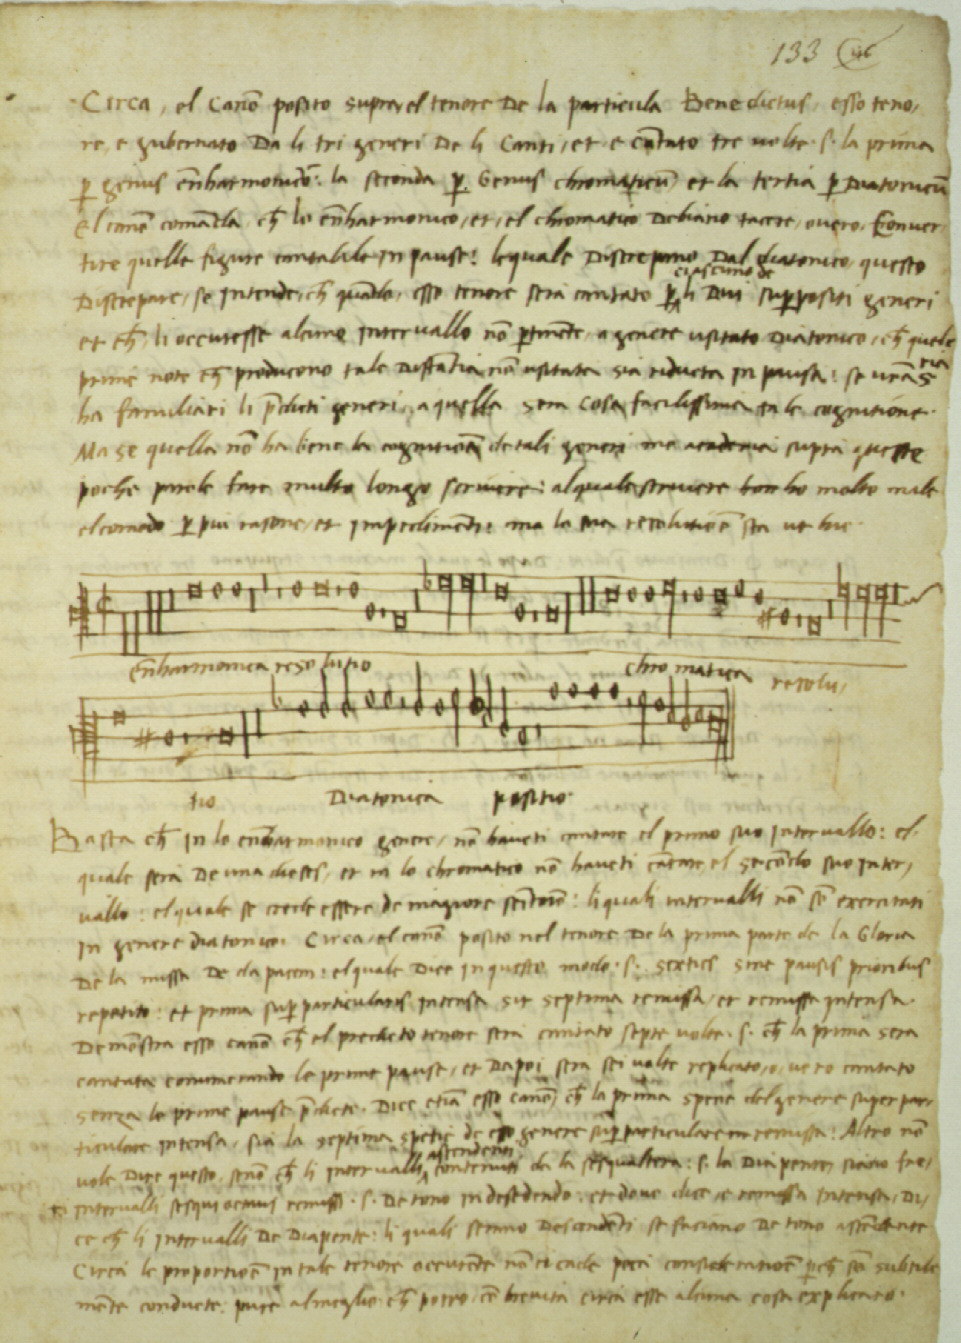 133
Circa, el Canõ posito supra el tenore De la particula Benedictus, esso teno,
re, e gubernato Da li tri generi De li Canti, et e cãtato tre volte .s. la prima
p genus enharmonicũ: la seconda p. Genus chromaticũ, et la tertia p Diatonicũ
El canõ comãda, cħ lo enharmonico, et, el chromatico Debiano tacere, overo, Conver,
tire quelle figure cantabile in pause: le quale Discrepano Dal diatonico, questo
ciascuno de
Discrepare, se intende, cħ quãdo, esso tenore sera cantato p li Dui suppositi generi
et cħ, li occuresse alcuno intervallo nõ ptinẽte, a genere usitato Diatonico, cħ quele
prime note cħ producono tale Distantia nõ usitata sia riducta in pausa: se vr̃a S
ria
ha familiari li p̃dicti generi, a quella sera cosa facilissima tale cognitione.
Ma se quella nõ ha bene la cognitione de tali generi supra queste
poche parole fare multo longo scrivere: al quale scrivere molto male
el comodo p piu rasone, et impedimenti: ma la resolutiõe sta ut hic
enharmonica resolutio chromatica resolu,
tio Diatonica positio.
Basta cħ in lo enharmonico genere, nõ haveti cantare el primo suo intervallo: el,
quale sera De una diesis, et in lo chromatico nõ haveti cãtare el secõdo suo inter,
vallo: el quale se crede essere de magiore semitonio: li quali intervalli nõ sõ exercitati
in genere diatonico. Circa, el canõ posito nel tenore De la prima parte de la Gloria
De la missa De da pacem: el quale Dice in questo modo .s. sexties sine pausis prioribus
repetito: et prima superparticularis intensa sit septima remissa, et remissa intensa.
Demõstra esso canõ cħ el predicto tenore sera cantato septe volte .s. cħ la prima sera
cantata connumerando le prime pause, et Dapoi sera sei volte replicato, o, vero cantato
senza le prime pause p̃dicte. Dice etiã esso canõ, cħ la prima specie del genere superpar,
ticulare intensa, sia la septima spetie de esso genere superparticulare remissa: Altro nõ
ascendenti
vole Dire questo, senõ cħ li intervalli, contenuti da la sesqualtera: .s. la Diapente, siano fac,
ti intervalli sesquioctavi remissi .s. De tono in descẽdendo: et dove dice, e remissa intensa, Di,
ce cħ li intervalli De Diapente: li quali seranno Descendẽti se faciano De tono ascẽdente
Circa le proportiõe in tale tenore occurẽte nõ ci cade consideratiõe
mẽte conducte: pure al meglio cħ potro, cũ brevita circa esse alcuna cosa explicaro.